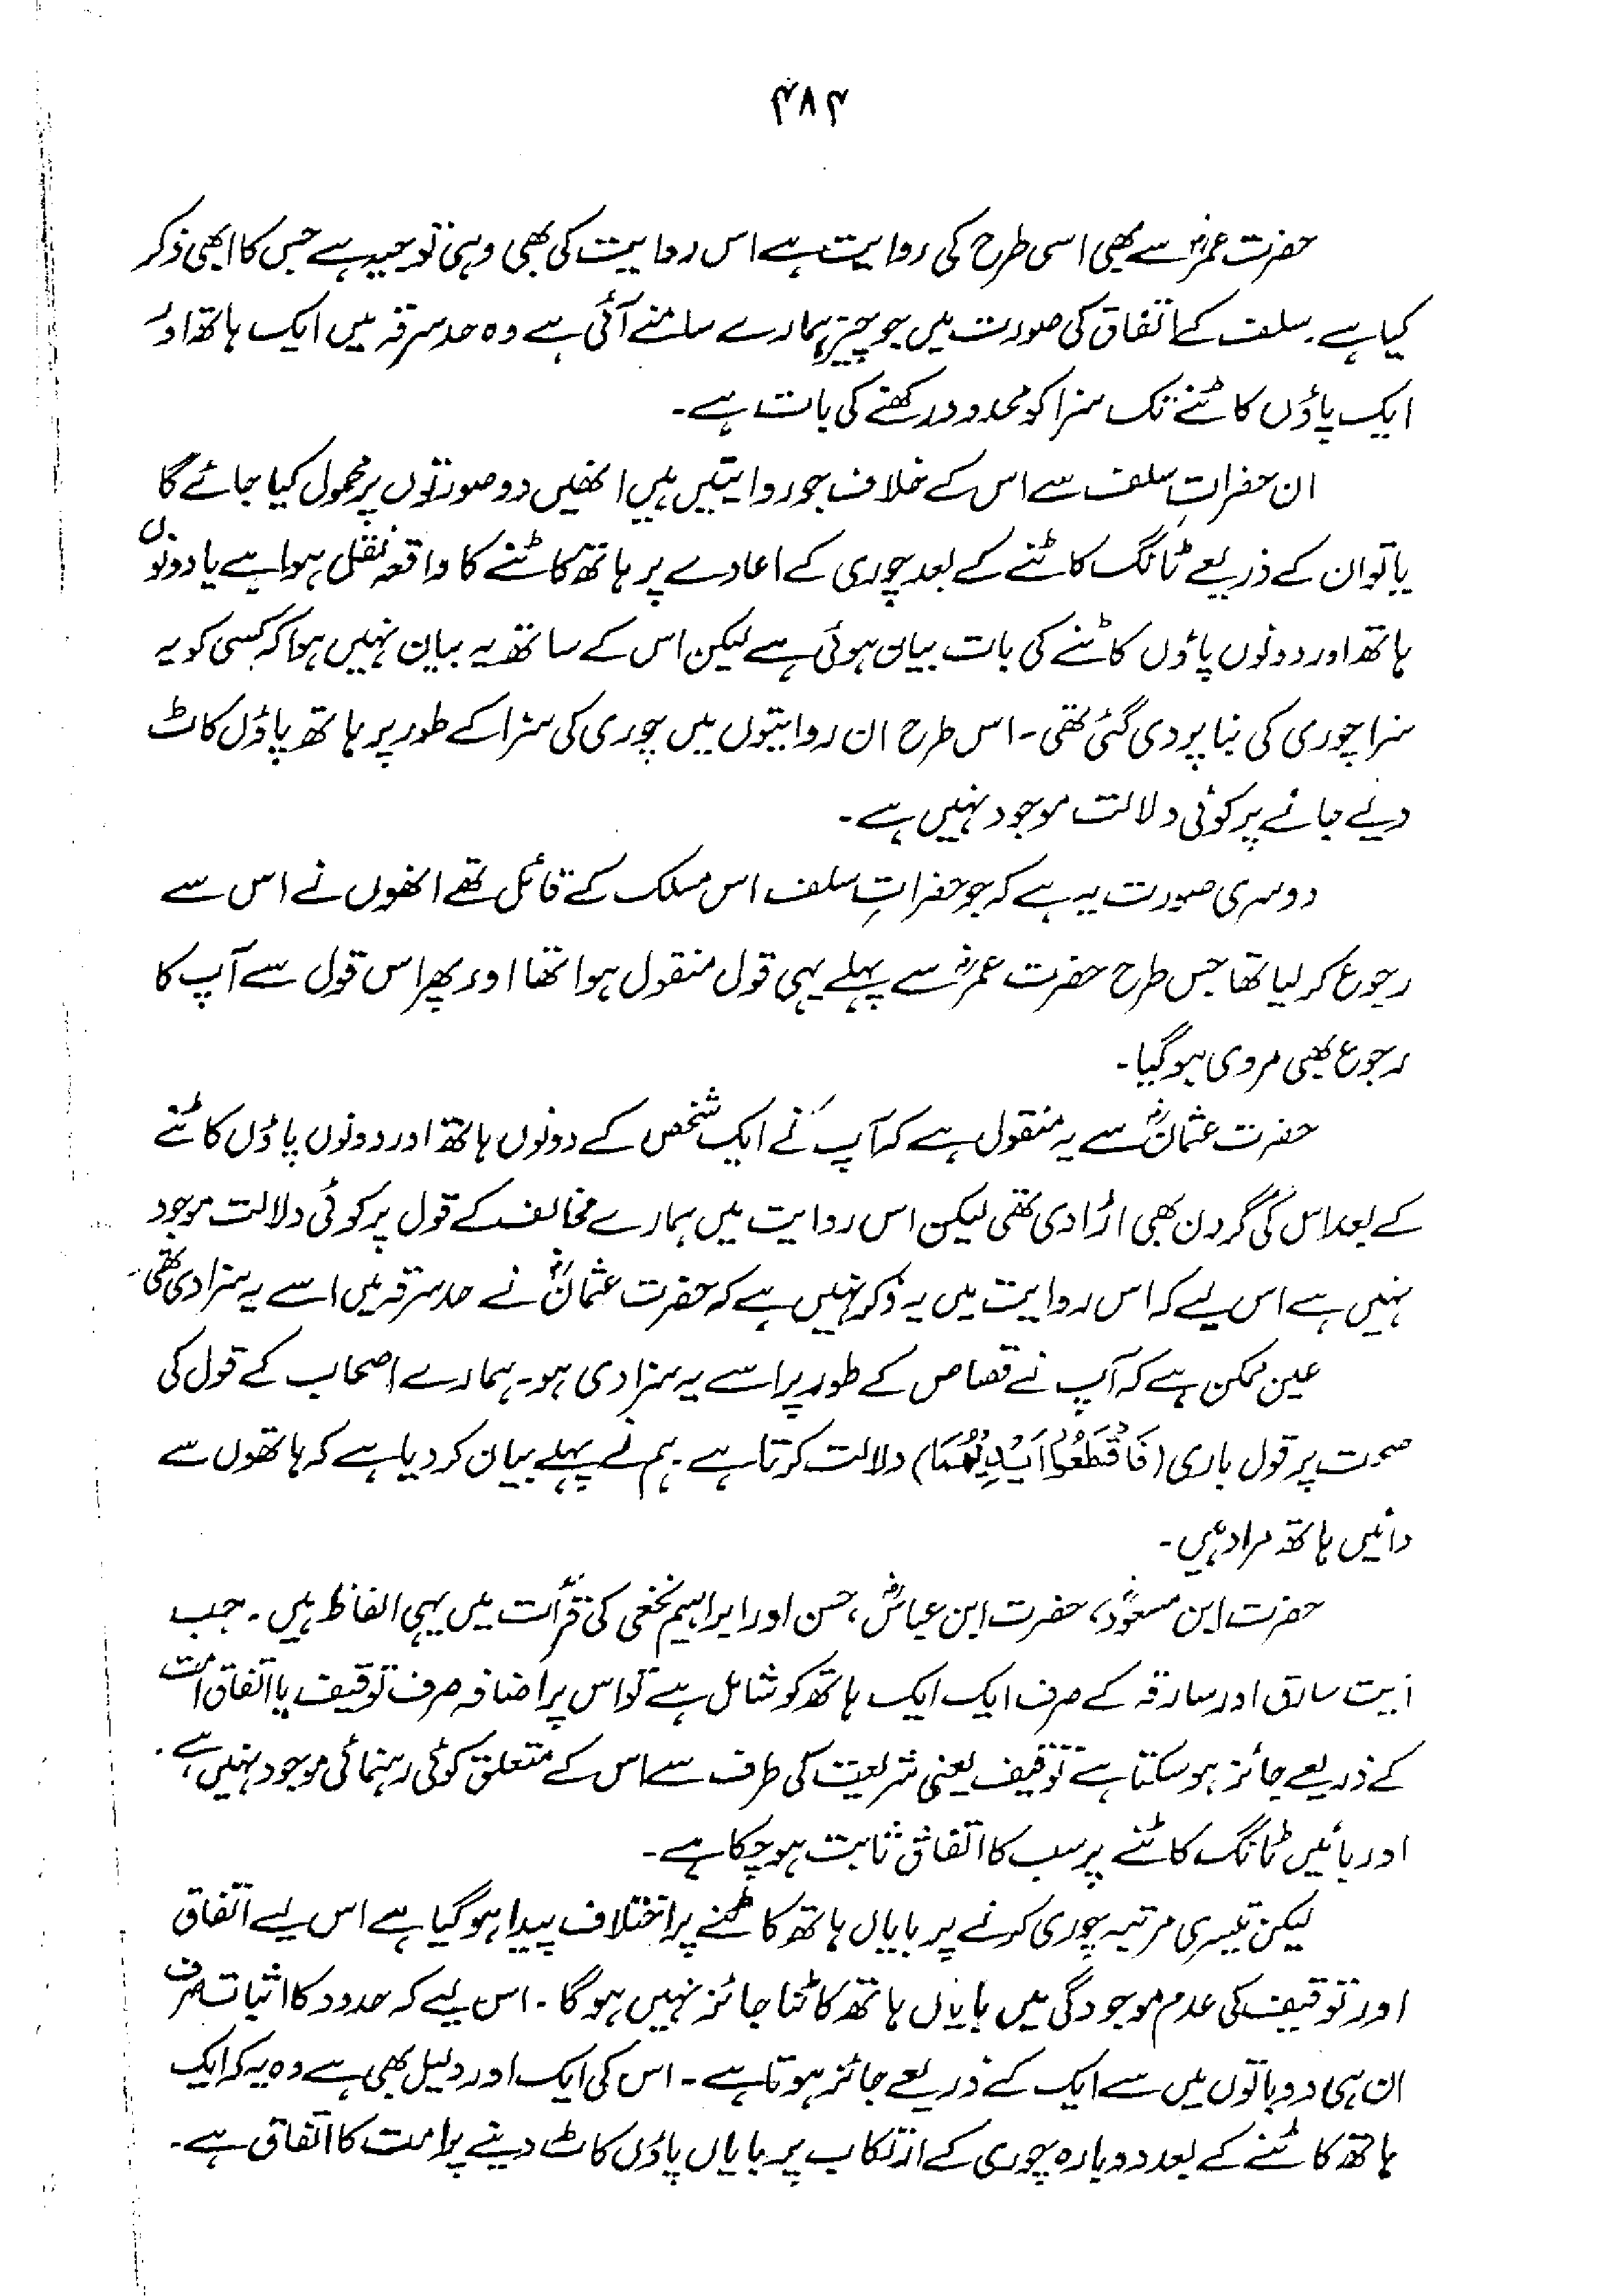 ۴۸۴
حضرت عمرؓ سے بھی اسی طرح کی روایت ہے اس روایت کی بھی وہی توجیہ ہے جس کا ابھی ذکر
کیا ہے۔ سلف کے اتفاق کی صورت میں جو چیز ہمارے سامنے آئی ہے وہ حد سرقہ میں ایک ہاتھ اور
ایک پاؤں کاٹنے تک سزا کو محدود رکھنے کی بات ہے۔
ان حضراتِ سلف سے اس کے خلاف جو روایتیں ہیں انھیں دو صورتوں پر محمول کیا جائے گا
یا تو ان کے ذریعے ٹانگ کاٹنے کے بعد چوری کے اعادے پر ہاتھ کاٹنے کا واقعہ نقل ہوا ہے یا دونوں
ہاتھ اور دونوں پاؤں کاٹنے کی بات بیان ہوئی ہے لیکن اس کے ساتھ یہ بیان نہیں ہوا کہ کسی کو یہ
سزا چوری کی بنا پر دی گئی تھی۔ اس طرح ان روایتوں میں چوری کی سزا کے طور پر ہاتھ پاؤں کاٹ
دیئے جانے پر کوئی دلالت موجود نہیں ہے۔
دوسری صورت یہ ہے کہ جو حضراتِ سلف اس مسلک کے قائل تھے انھوں نے اس سے
رجوع کر لیا تھا جس طرح حضرت عمرؓ سے پہلے یہی قول منقول ہوا تھا اور پھر اس قول سے آپ کا
رجوع بھی مروی ہو گیا۔
حضرت عثمانؓ سے یہ منقول ہے کہ آپ نے ایک شخص کے دونوں ہاتھ اور دونوں پاؤں کاٹنے
کے بعد اس کی گردن بھی اڑا دی تھی لیکن اس روایت میں ہمارے مخالف کے قول پر کوئی دلالت موجود
نہیں ہے اس لیے کہ اس روایت میں یہ ذکر نہیں ہے کہ حضرت عثمانؓ نے حد سرقہ میں اسے یہ سزا دی تھی۔
عین ممکن ہے کہ آپ نے قصاص کے طور پر اسے یہ سزا دی ہو۔ ہمارے اصحاب کے قول کی
صحت پر قول باری (فَاقْطَعُوْا اَيْدِيَهُمَا) دلالت کرتا ہے۔ ہم نے پہلے بیان کر دیا ہے کہ ہاتھوں سے
دائیں ہاتھ مراد ہیں۔
حضرت ابن مسعودؓ، حضرت ابن عباسؓ، حسن اور ابراہیم نخعی کی قرأت میں یہی الفاظ ہیں۔ جب
آیت سارق اور سارقہ کے صرف ایک ایک ہاتھ کو شامل ہے تو اس پر اضافہ صرف توقیف یا اتفاق امت
کے ذریعے جائز ہو سکتا ہے توقیف یعنی شریعت کی طرف سے اس کے متعلق کوئی رہنمائی موجود نہیں ہے۔
اور بائیں ٹانگ کاٹنے پر سب کا اتفاق ثابت ہو چکا ہے۔
لیکن تیسری مرتبہ چوری کرنے پر بایاں ہاتھ کاٹنے پر اختلاف پیدا ہو گیا ہے اس لیے اتفاق
اور توقیف کی عدم موجودگی میں بایاں ہاتھ کاٹنا جائز نہیں ہو گا۔ اس لیے کہ حدود کا اثبات صرف
ان ہی دو باتوں میں سے ایک کے ذریعے جائز ہوتا ہے۔ اس کی ایک اور دلیل بھی ہے وہ یہ کہ ایک
ہاتھ کاٹنے کے بعد دوبارہ چوری کے ارتکاب پر بایاں پاؤں کاٹ دینے پر امت کا اتفاق ہے۔